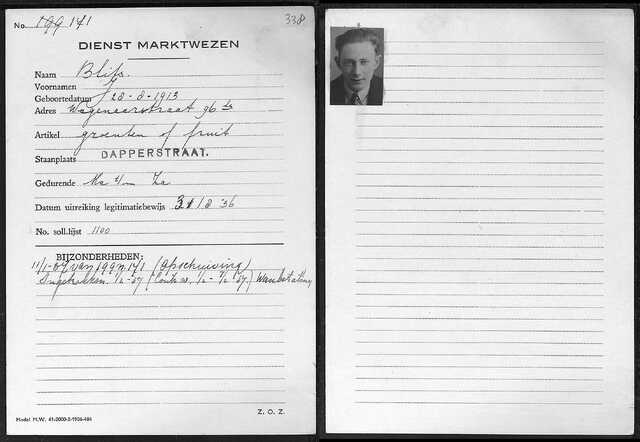 338
No. 199 141
DIENST MARKTWEZEN
Naam Blits.
Voornamen J
Geboortedatum 28-8-1913
Adres Wagenaarstraat 96 hs
Artikel groenten of fruit
Staanplaats DAPPERSTRAAT.
Gedurende Ma t/m Za
Datum uitreiking legitimatiebewijs 36
No. soll.lijst 1100
BIJZONDERHEDEN:
11/1-37 van 199 n. 141 (Opschuiving)
Ingetrokken 1/2-37 (Contr. 1/2 - 7/2-37) Wanbetaling
Model M.W.
Z. O. Z.